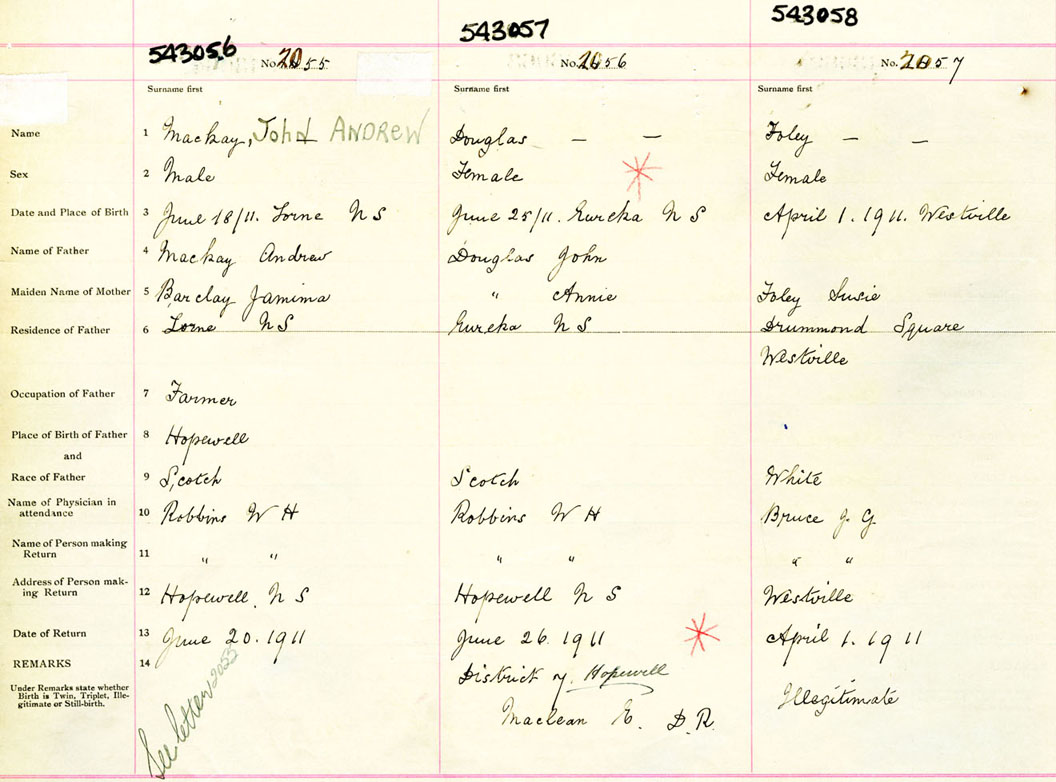 543056 543057 543058
No. 2055 No. 2056 No. 2057
Surname first Surname first Surname first
Name 1 Mackay, John ANDREW Douglas — — Foley — —
Sex 2 Male Female Female
Date and Place of Birth 3 June 18/11. Lorne N S June 25/11. Eureka N S April 1. 1911. Westville
Name of Father 4 Mackay Andrew Douglas John
Maiden Name of Mother 5 Barclay Jamima " Annie Foley Susie
Residence of Father 6 Lorne N S Eureka N S Drummond Square
Westville
Occupation of Father 7 Farmer
Place of Birth of Father 8 Hopewell
and
Race of Father 9 Scotch Scotch White
Name of Physician in
attendance 10 Robbins W H Robbins W H Bruce J. G.
Name of Person making
Return 11 " " " " " "
Address of Person mak-
ing Return 12 Hopewell. N S Hopewell N S Westville
Date of Return 13 June 20. 1911 June 26. 1911 April 1. 1911
REMARKS 14 District of Hopewell
Under Remarks state whether
Birth is Twin, Triplet, Ille-
gitimate or Still-birth.
Maclean E. D.R. Illegitimate
See letter 2055